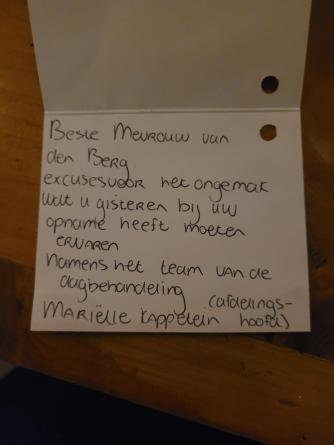 Beste Mevrouw van
den Berg
excuses voor het ongemak
wat u gisteren bij uw
opname heeft moeten
ervaren
Namens het team van de
dagbehandeling (afdelings-
Mariëlle Kappelein hoofd)